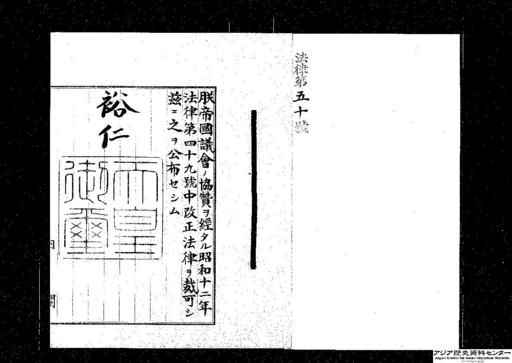 法律第五十號
朕帝國議會ノ協贊ヲ經タル昭和十二年
法律第四十九號中改正法律ヲ裁可シ
茲ニ之ヲ公布セシム
裕仁
天皇
御璽
内
閣
アジア歴史資料センター
Japan Center for Asian Historical Records